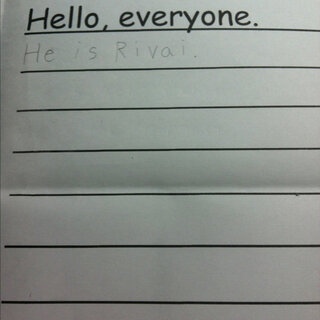 Hello, everyone.
He is Rivai.